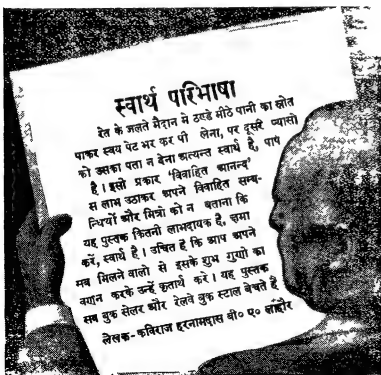 स्वार्थ परिभाषा
रेत के जलते मैदान मे ठण्डे मीठे पानी का स्रोत
पाकर स्वय पेट भर कर पी लेना, पर दूसरे प्यासो
को उसका पता न देना अत्यन्त स्वार्थ है, पाप
है। इसी प्रकार 'विवाहित आनन्द'
स लाभ उठाकर अपने विवाहित सम्ब-
न्धियों और मित्रों को न बताना कि
यह पुस्तक कितनी लाभदायक है, क्षमा
करें, स्वार्थ है। उचित है कि आप अपने
सब मिलने वालो से इसके शुभ गुणो का
वर्णन करके उन्हें कृतार्थ करे। यह पुस्तक
सब बुक सेलर और रेलवे बुक स्टाल बेचते है
लेखक-कविराज हरनामदास बी० ए० लाहौर